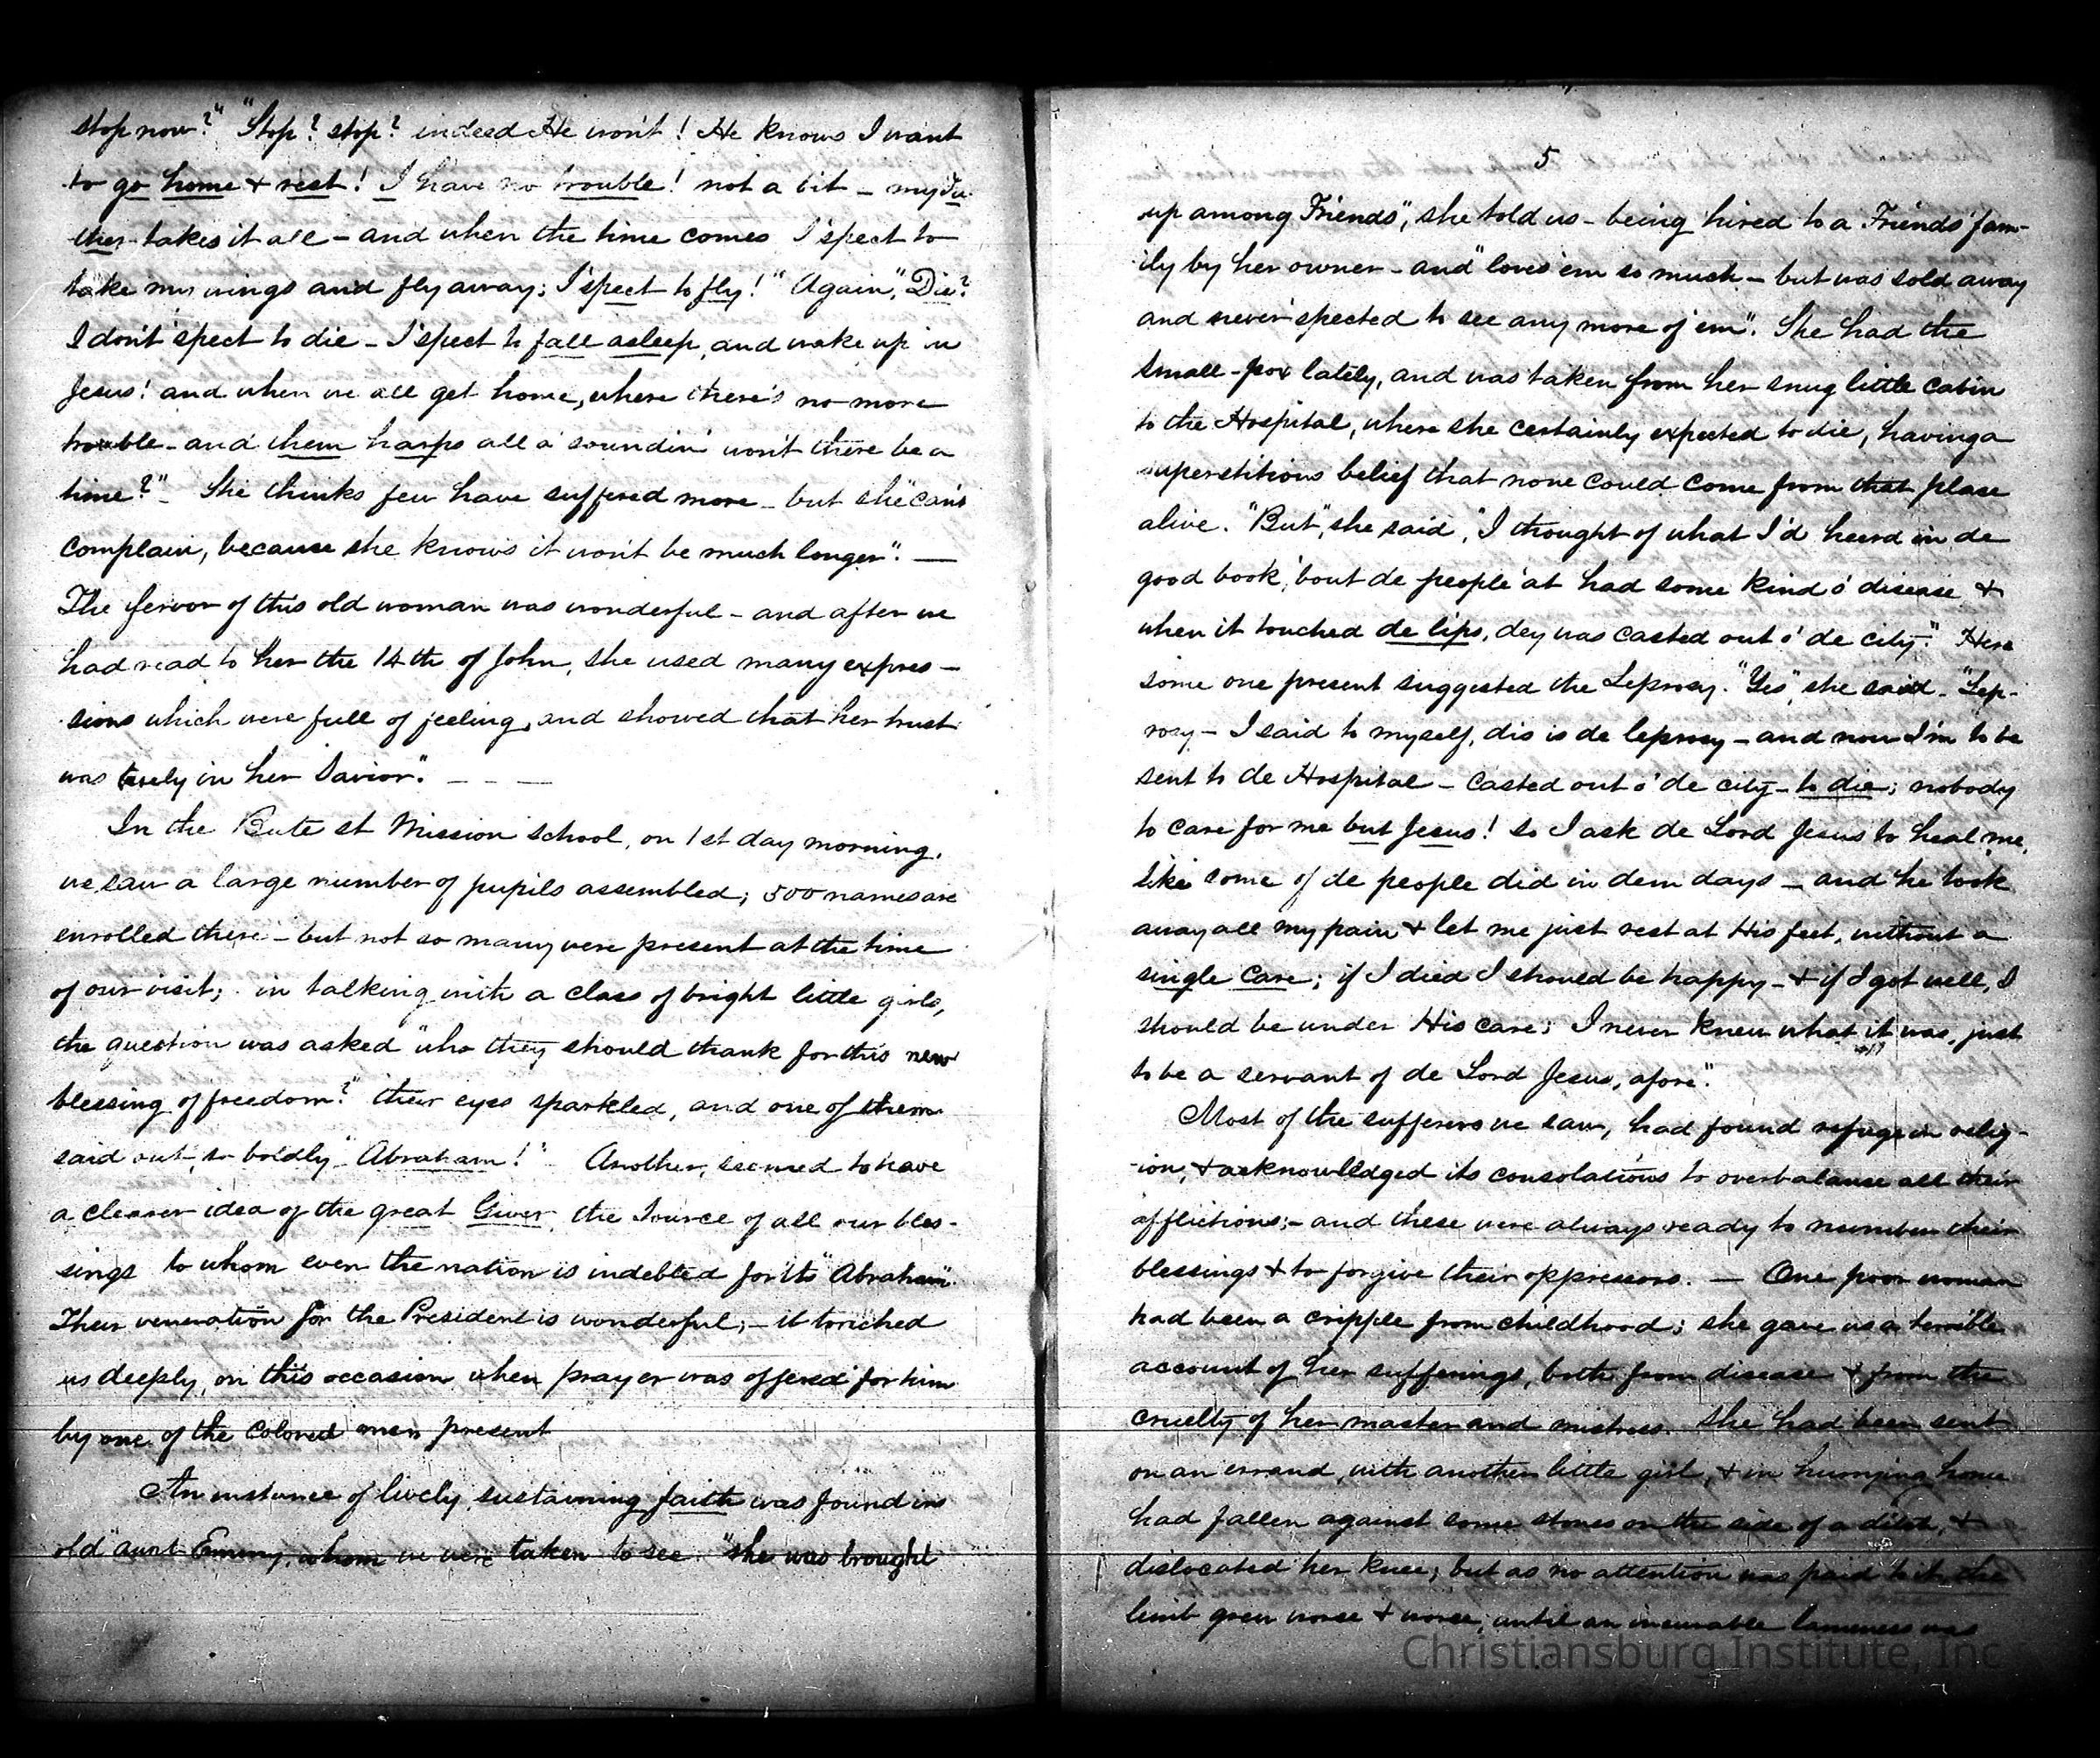 stop now?" "Stop? stop? indeed He won't! He knows I want
to go home & rest! I have no trouble! not a bit - my Fa-
ther takes it all - and when the time comes I 'spect to
take my wings and fly away; I 'spect to fly!" Again, "Die?
I don't 'spect to die - I 'spect to fall asleep, and wake up in
Jesus! and when we all get home, where there's no more
trouble - and them harps all a' soundin' won't there be a
time?" - She thinks few have suffered more - but she "can't
complain, because she knows it won't be much longer". —
The fervor of this old woman was wonderful - and after we
had read to her the 14th of John, she used many expres-
sions which were full of feeling, and showed that her trust
was truly in her Savior". - - —
In the Bute st Mission school, on 1st day morning,
we saw a large number of pupils assembled; 500 names are
enrolled there - but not so many were present at the time
of our visit; in talking with a class of bright little girls,
the question was asked "who they should thank for this new
blessing of freedom?" their eyes sparkled, and one of them
said out, so boldly "Abraham!" - Another, seemed to have
a clearer idea of the great Giver, the Source of all our bles-
sings to whom even the nation is indebted for its "Abraham".
Their veneration for the President is wonderful; - it touched
us deeply, on this occasion when prayer was offered for him
by one of the colored men present
An instance of lively, sustaining faith was found in
old "aunt Emmy, whom we were taken to see. "she was brought
5
up among Friends", she told us - being hired to a Friends' fam-
ily by her owner - and "loves 'em so much - but was sold away
and never 'spected to see any more of 'em". She had the
small-pox lately, and was taken from her snug little cabin
to the Hospital, where she certainly expected to die, having a
superstitious belief that none could come from that place
alive. "But", she said, "I thought of what I'd heerd in de
good book, 'bout de people 'at had some kind o' disease &
when it touched de lips, dey was casted out o' de city." Here
some one present suggested the Leprosy. "Yes", she said - "Lep-
rosy - I said to myself, dis is de leprosy - and now I'm to be
sent to de Hospital - casted out o' de city - to die; nobody
to care for me but Jesus! so I ask de Lord Jesus to heal me,
like some of de people did in dem days - and he took
away all my pain & let me just rest at His feet, without a
single care; if I died I should be happy - & if I got well, I
should be under His care; I never knew what it was, just
to be a servant of de Lord Jesus, afore".
Most of the sufferers we saw, had found refuge in relig-
-ion, & acknowledged its consolations to overbalance all their
afflictions; - and these were always ready to number their
blessings & to forgive their oppressors. — One poor woman
had been a cripple from childhood; she gave us a terrible
account of her sufferings, both from disease & from the
cruelty of her master and mistress. She had been sent
on an errand, with another little girl, & in hurrying home
had fallen against some stones on the side of a ditch, &
dislocated her knee; but as no attention was paid to it, the
limb grew worse & worse, until an incurable lameness was
Christiansburg Institute, Inc